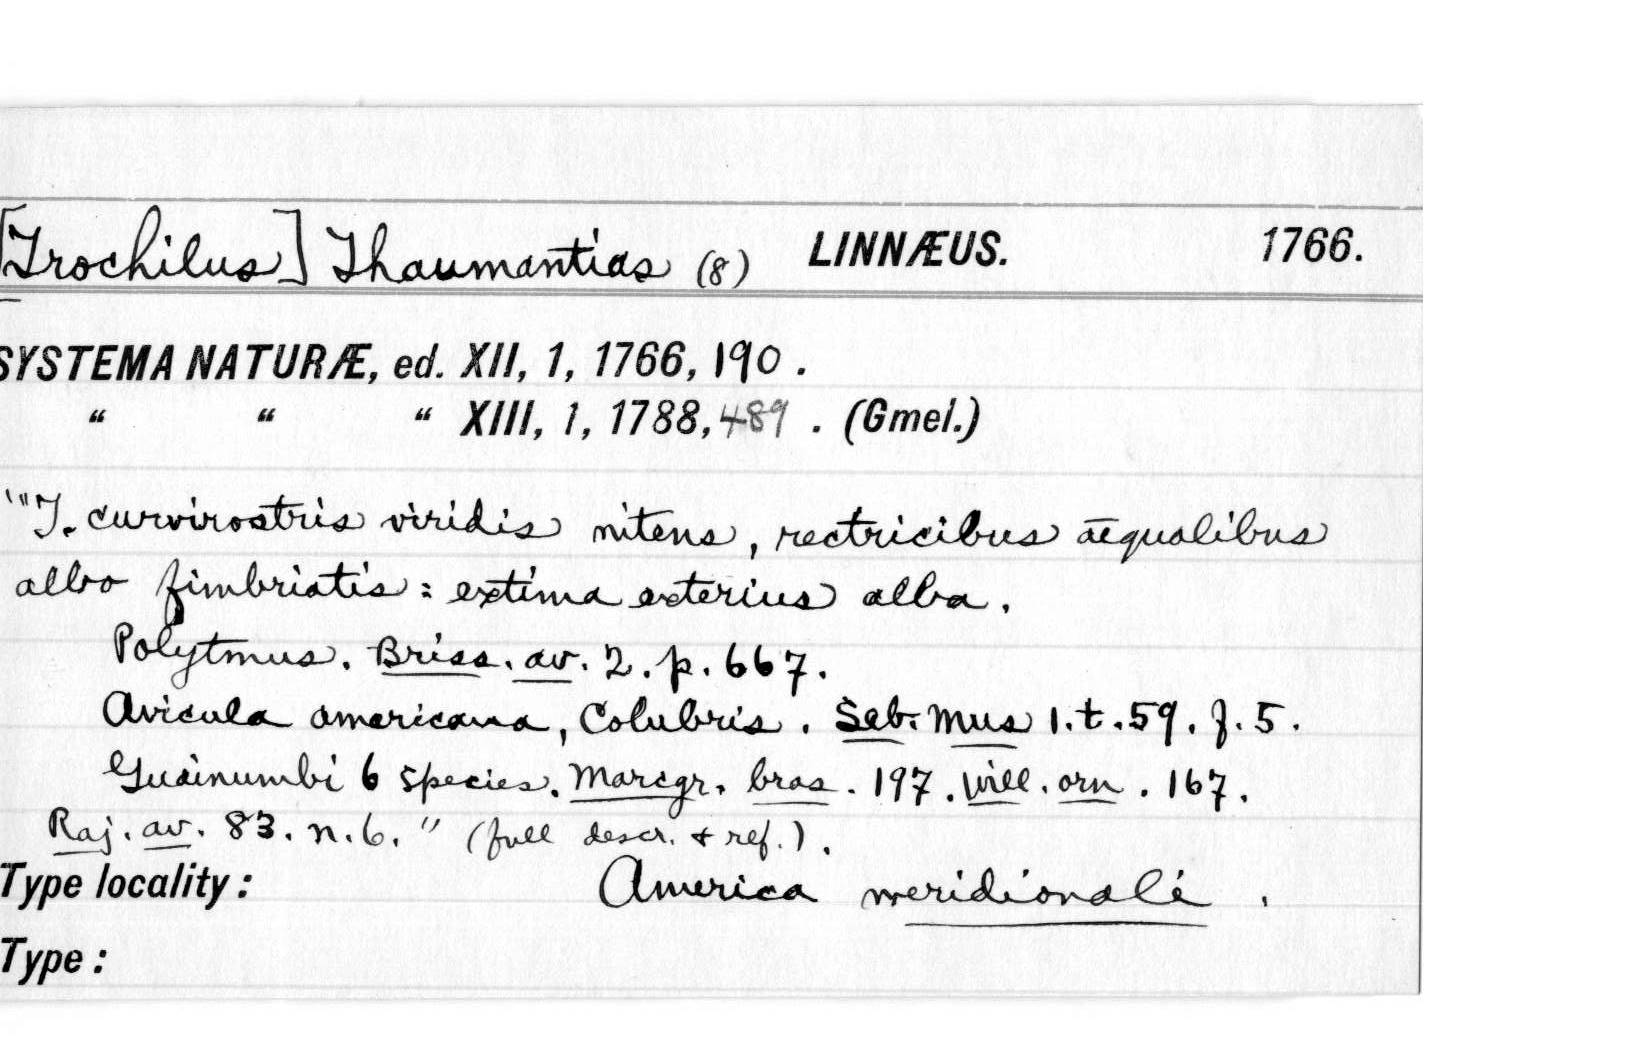 [Trochilus] Thaumantias (8) LINNÆUS. 1766.
SYSTEMA NATURÆ, ed. XII, 1, 1766, 190 .
“ “ “ XIII, 1, 1788, 489 . (Gmel.)
'"T. curvirostris viridis nitens, rectricibus æqualibus
albo fimbriatis: extima exterius alba.
Polytmus. Briss. av. 2. p. 667.
Avicula americana, Colubris. Seb. Mus 1. t. 59. f. 5.
Guainumbi 6 species. Marcgr. bras. 197. Will. orn. 167.
Raj. av. 83. n. 6. " (full descr. & ref.).
Type locality: America meridionali .
Type: